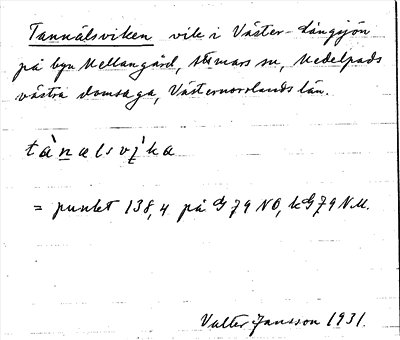 Tannälsviken vik i Väster-Långsjön
på byn Mellangård, Attmars sn, Medelpads
västra domsaga, Västernorrlands län.
tànælsvi̯ka
= punkt 138,4 på G79 NO, kG79 N.M.
Valter Jansson 1931.